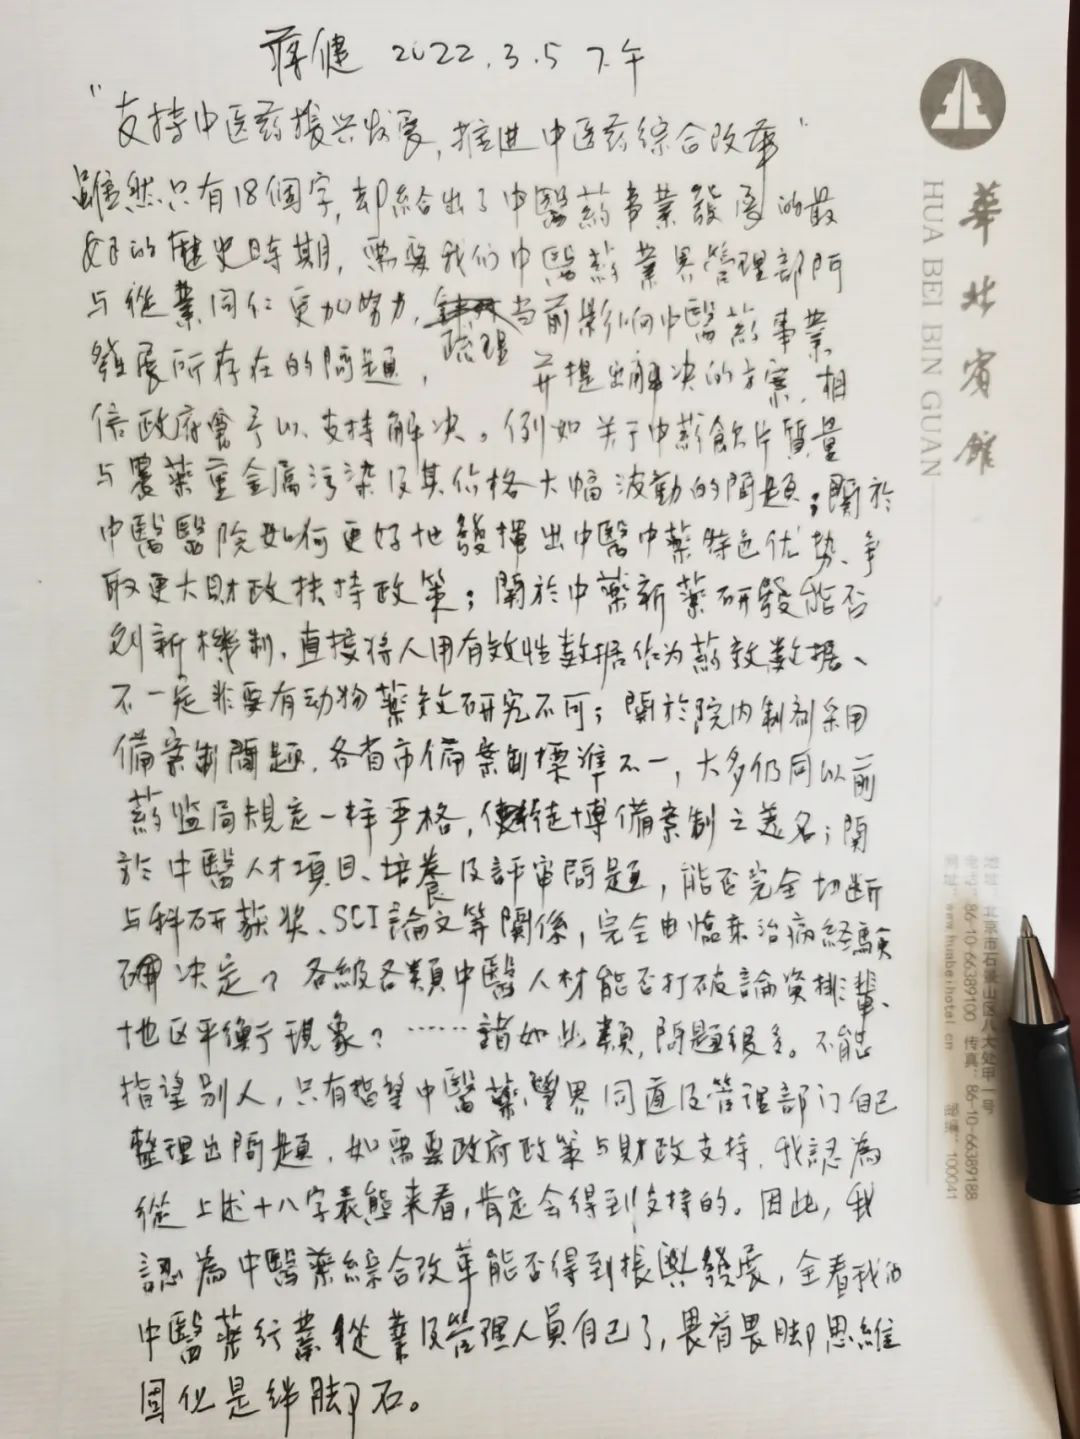 蒋健 2022.3.5 下午
“支持中医药振兴发展，推进中医药综合改革”
雖然只有18個字，却給出了中醫药事業發展的最
好的歷史時期，需要我们中醫药業界管理部门
与從業同仁更加努力，疏理当前影响中醫药事業
發展所存在的問題，并提出解决的方案，相
信政府會予以支持解决。例如关于中药飲片質量
与農藥重金属污染及其价格大幅波動的問題；關於
中醫醫院如何更好地發揮出中醫中藥特色优势、争
取更大財政扶持政策；關於中藥新藥研發能否
创新機制，直接将人用有效性数据作为药效数据、
不一定非要有动物藥效研究不可；關於院内制剂采用
備案制問題，各省市備案制標準不一，大多仍同以前
药监局規定一样严格，使徒博備案制之美名；關
於中醫人才項目、培養及評审問題，能否完全切断
与科研获奖、SCI論文等關係，完全由臨床治病経験
决定？各級各類中醫人材能否打破論资排輩、
地区平衡于現象？……諸如此類，問題很多。不能
指望别人，只有指望中醫藥業界同道及管理部门自己
整理出問題，如需要政府政策与財政支持，我認為
從上述十八字表態来看，肯定会得到支持的。因此，我
認為中醫藥綜合改革能否得到振興發展，全看我们
中醫藥行業從業及管理人員自己了，畏首畏脚思維
固化是绊脚石。
華北賓館
HUA BEI BIN GUAN
地址：北京市石景山区八大处甲一号
电话：86-10-66389100 传真：86-10-66389188
网址：www.huabeihotel.cn 邮编：100041